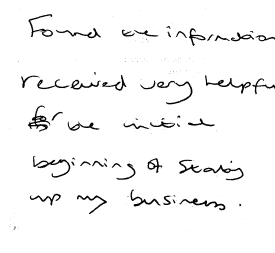 Found the information
received very helpful
for the initial
beginning of starting
up my business.